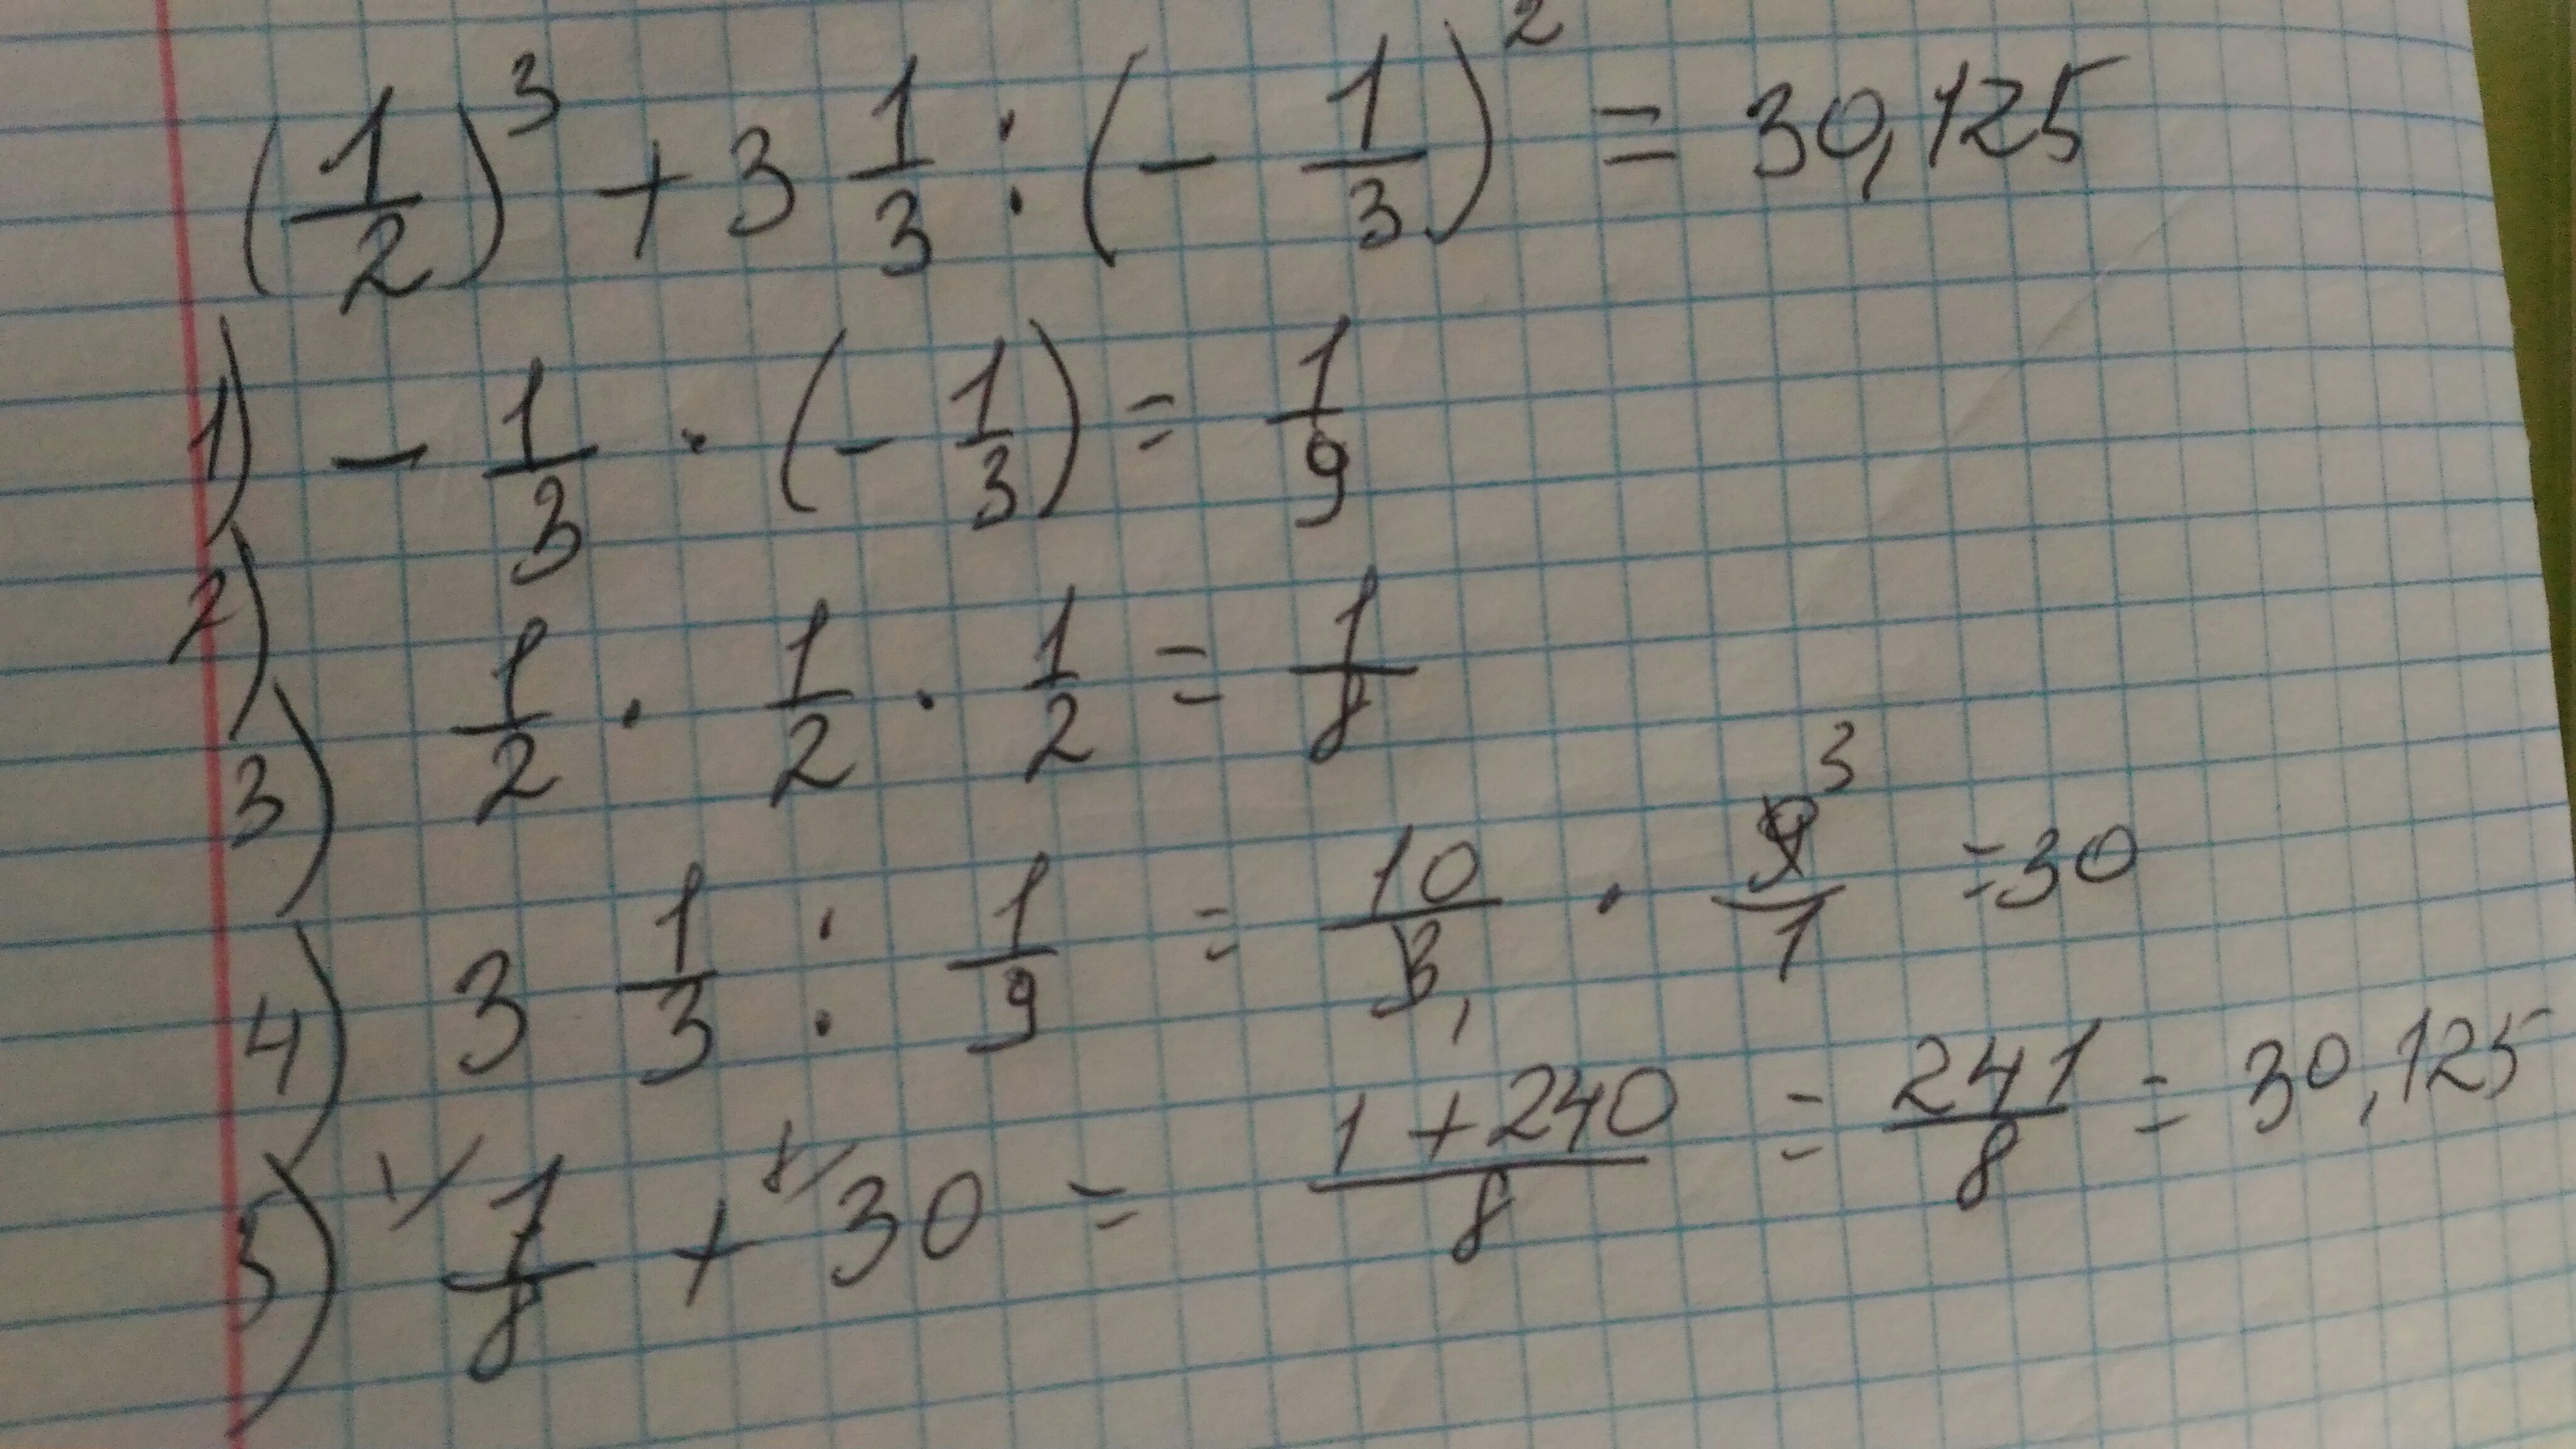 (1/2)³ + 3 1/3 : (- 1/3)² = 30,125
1) - 1/3 · (- 1/3) = 1/9
2)
1/2 · 1/2 · 1/2 = 1/8
3)
4) 3 1/3 : 1/9 = 10/3 1 · 9/1 3 = 30
5) 1/ 1/8 + 8/ 30 = 1 + 240/8 = 241/8 = 30,125